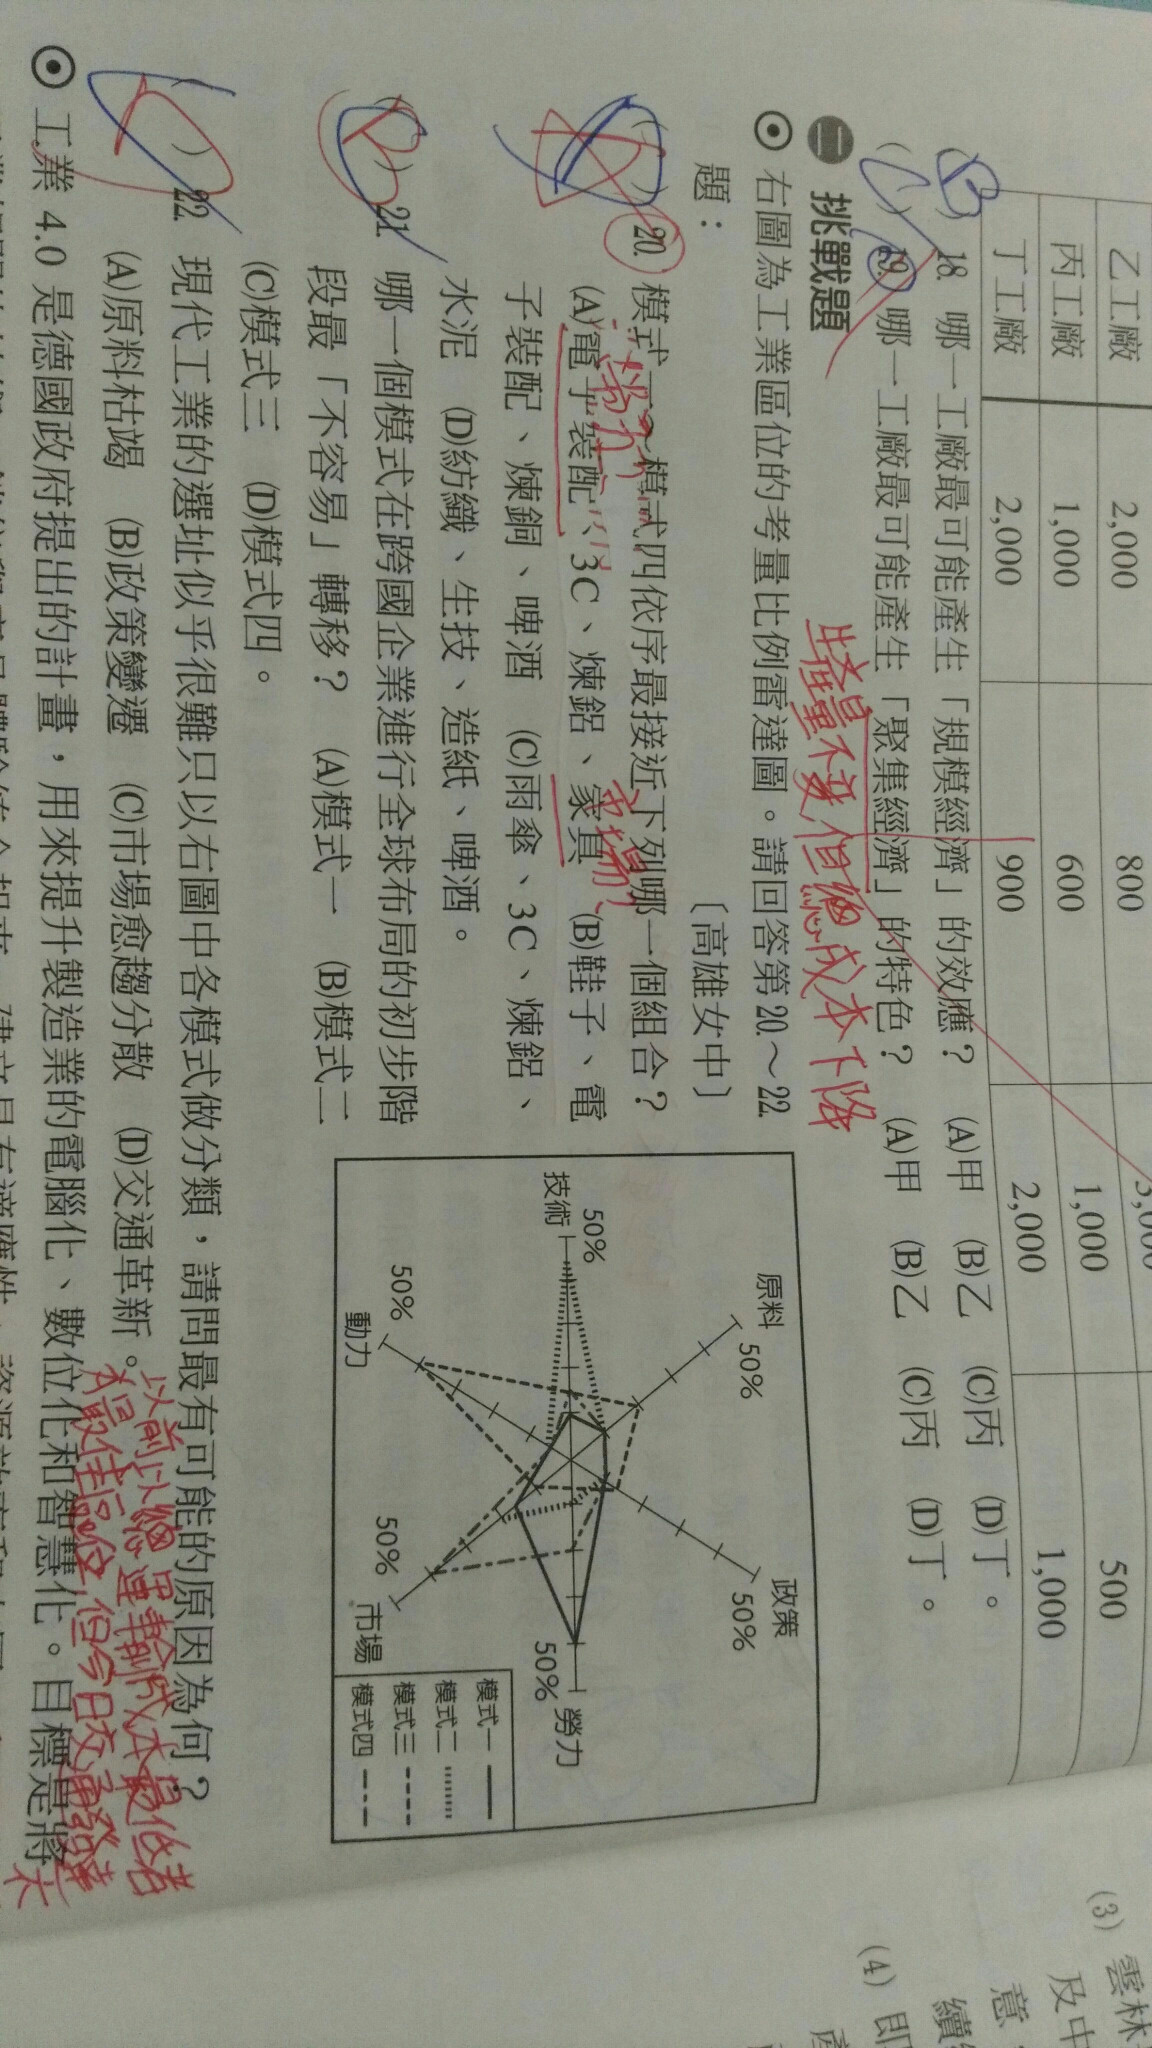 乙工廠 2,000 800 500
丙工廠 1,000 600 1,000
丁工廠 2,000 900 2,000 1,000
(B) 18. 哪一工廠最可能產生「規模經濟」的效應？ (A)甲 (B)乙 (C)丙 (D)丁。
19. 哪一工廠最可能產生「聚集經濟」的特色？ (A)甲 (B)乙 (C)丙 (D)丁。
產量不變,但總成本下降
二 挑戰題
右圖為工業區位的考量比例雷達圖。請回答第20.～22.
題： 〔高雄女中〕
20. 模式一～模式四依序最接近下列哪一個組合？
勞力 市場
(A)電子裝配、3C、煉鋁、家具 (B)鞋子、電
子裝配、煉銅、啤酒 (C)雨傘、3C、煉鋁、
水泥 (D)紡織、生技、造紙、啤酒。
21. 哪一個模式在跨國企業進行全球布局的初步階
段最「不容易」轉移？ (A)模式一 (B)模式二
(C)模式三 (D)模式四。
原料 50%
政策 50%
技術 50%
勞力 50%
動力 50%
市場 50%
模式一
模式二
模式三
模式四
22. 現代工業的選址似乎很難只以右圖中各模式做分類，請問最有可能的原因為何？
(A)原料枯竭 (B)政策變遷 (C)市場愈趨分散 (D)交通革新。
以前以總運輸成本最低者
為最佳區位,但今日交通發達
工業 4.0 是德國政府提出的計畫，用來提升製造業的電腦化、數位化和智慧化。目標是將
(3) 雲林
及中
意
續
(4) 即